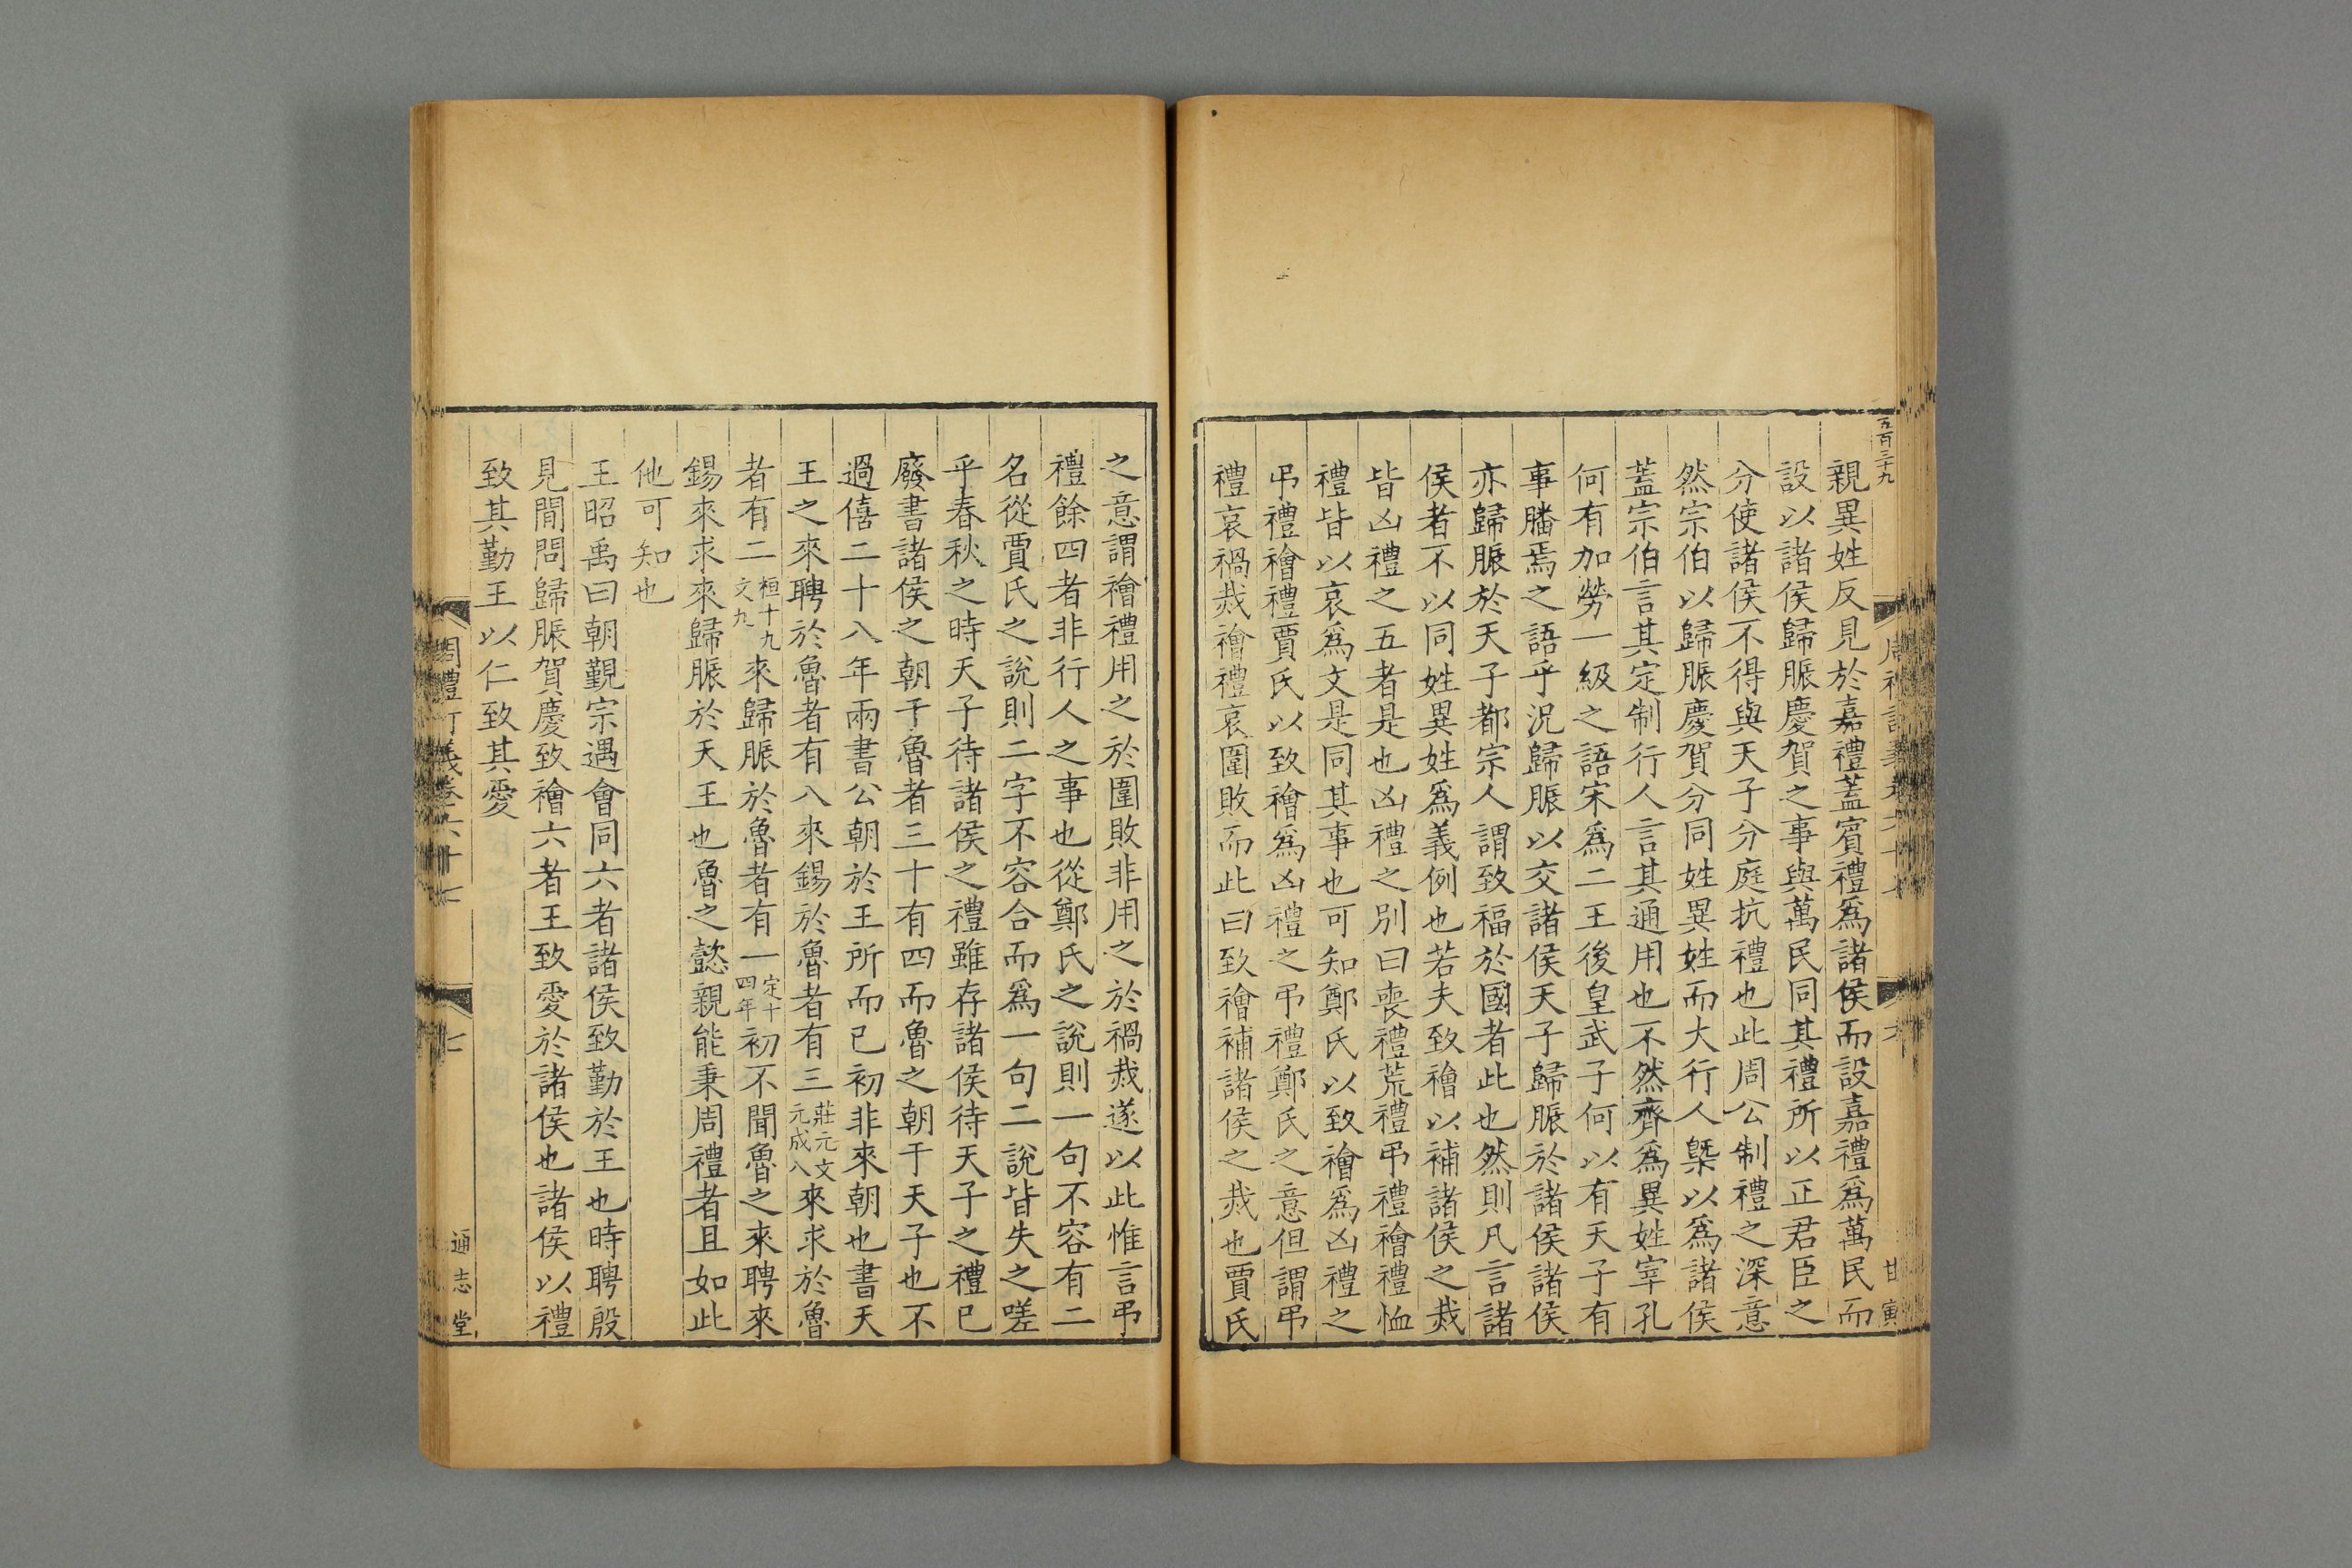 五百三十九
親異姓反見於嘉禮蓋賓禮爲諸侯而設嘉禮爲萬民而
設以諸侯歸脤慶賀之事與萬民同其禮所以正君臣之
分使諸侯不得與天子分庭抗禮也此周公制禮之深意
然宗伯以歸脤慶賀分同姓異姓而大行人槩以爲諸侯
蓋宗伯言其定制行人言其通用也不然齊爲異姓宰孔
何有加勞一級之語宋爲二王後皇武子何以有天子有
事膰焉之語乎況歸脤以交諸侯天子歸脤於諸侯諸侯
亦歸脤於天子都宗人謂致福於國者此也然則凡言諸
侯者不以同姓異姓爲義例也若夫致禬以補諸侯之烖
皆凶禮之五者是也凶禮之別曰喪禮荒禮弔禮禬禮恤
禮皆以哀爲文是同其事也可知鄭氏以致禬爲凶禮之
弔禮禬禮賈氏以致禬爲凶禮之弔禮鄭氏之意但謂弔
禮哀禍烖禬禮哀圍敗而此曰致禬補諸侯之烖也賈氏
甘寅
之意謂禬禮用之於圍敗非用之於禍烖遂以此惟言弔
禮餘四者非行人之事也從鄭氏之說則一句不容有二
名從賈氏之說則二字不容合而爲一句二說皆失之嗟
乎春秋之時天子待諸侯之禮雖存諸侯待天子之禮已
廢書諸侯之朝于魯者三十有四而魯之朝于天子也不
過僖二十八年兩書公朝於王所而已初非來朝也書天
王之來聘於魯者有八來錫於魯者有三莊元文元成八來求於魯
者有二桓十九文九來歸脤於魯者有一定十四年初不聞魯之來聘來
錫來求來歸脤於天王也魯之懿親能秉周禮者且如此
他可知也
王昭禹曰朝覲宗遇會同六者諸侯致勤於王也時聘殷
見閒問歸脤賀慶致禬六者王致愛於諸侯也諸侯以禮
致其勤王以仁致其愛
周禮訂義卷六十七
七
通志堂